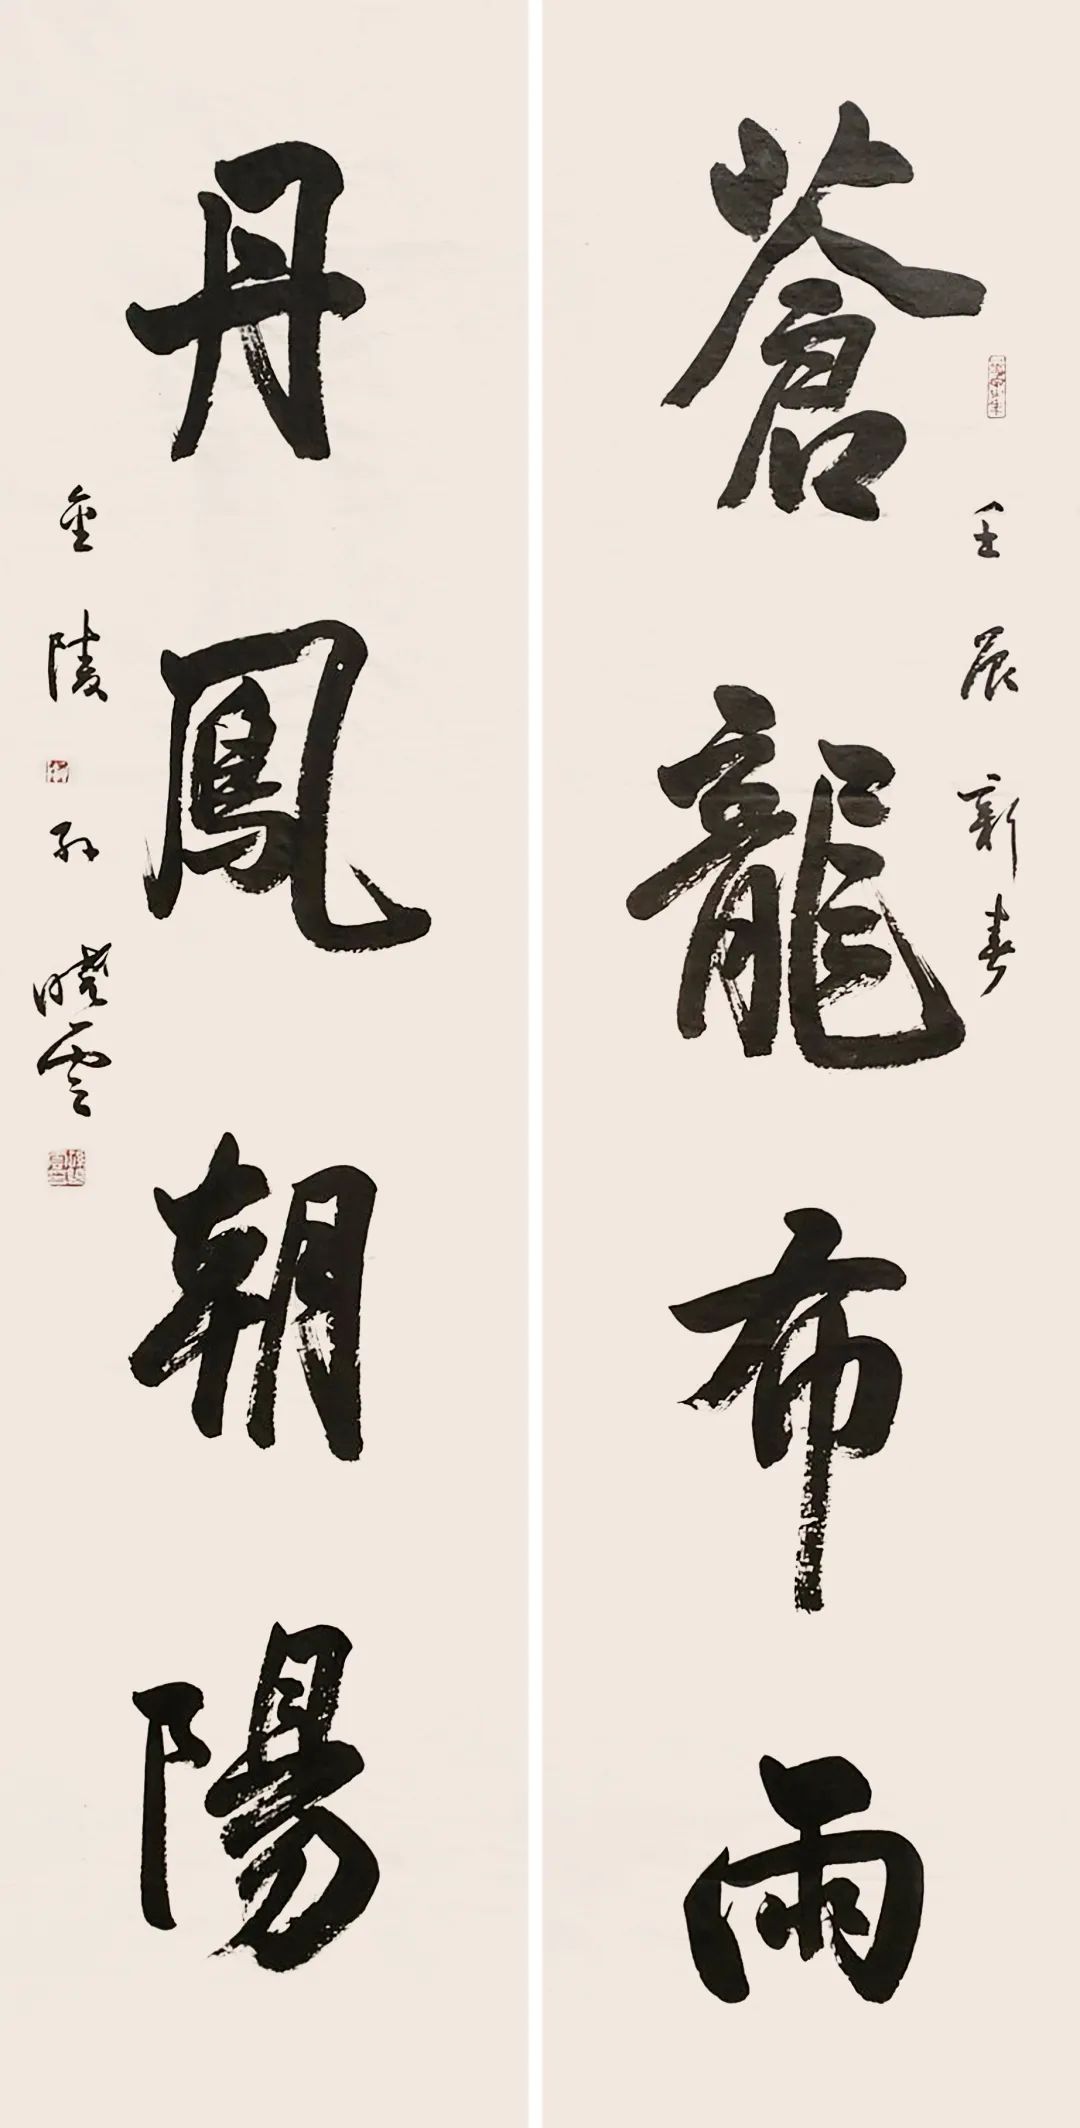 蒼龍布雨
壬辰新春
丹鳳朝陽
金陵孫曉雲